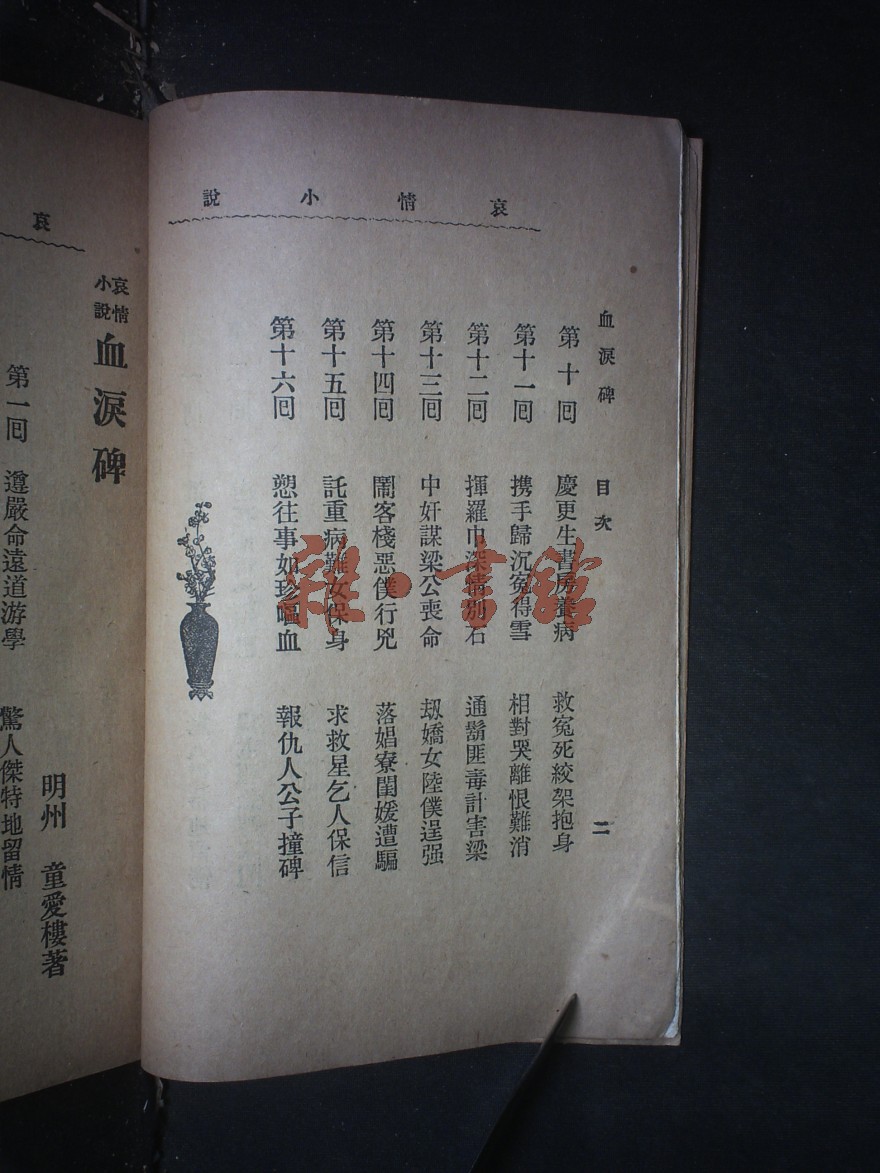 哀情小說
血淚碑 目次 二
第十回 慶更生書房養病 救冤死絞架抱身
第十一回 携手歸沉冤得雪 相對哭離恨難消
第十二回 揮羅巾深情別石 通鬍匪毒計害梁
第十三回 中奸謀梁公喪命 刼嬌女陸僕逞强
第十四回 鬧客棧惡僕行兇 落娼寮閨媛遭騙
第十五回 託重病難女保身 求救星乞人保信
第十六回 愬往事如珍嘔血 報仇人公子撞碑
雜·書館
哀
哀情小說 血淚碑
明州 童愛樓著
第一回 遵嚴命遠道游學 驚人傑特地留情